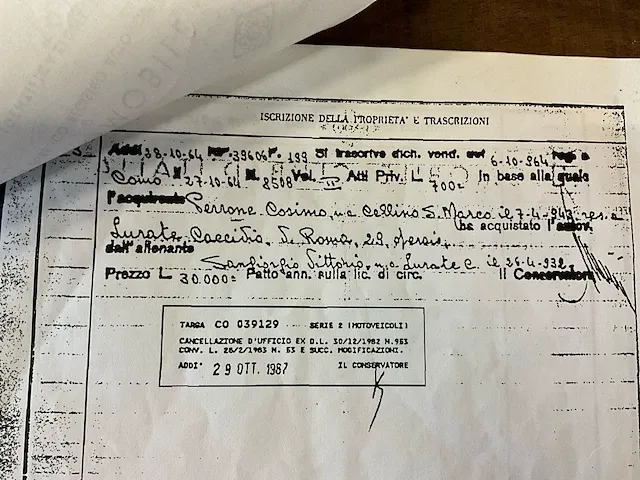 ISCRIZIONE DELLA PROPRIETA' E TRASCRIZIONI
Addì 28-10-64 Nº 39606 F. 199 Si trascrive dich. vend. aut 6-10-964 reg. a
Como 27-10-64 N. 8508 Vol. Atti Priv. L. 700= In base alla quale
l'acquirente Perrone Cosimo, n. a Cellino S. Marco il 7-4-943, res. a
Lurate Caccivio, V. Roma, 29, ha acquistato l'autov.
dall'alienante Sangiorgio Vittorio, n. a Lurate C. il 26-4-932,
Prezzo L. 30.000= Patto ann. sulla lic. di circ. Il Conservatore
TARGA CO 039129 SERIE 2 (MOTOVEICOLI)
CANCELLAZIONE D'UFFICIO EX D.L. 30/12/1982 N.953
CONV. L. 28/2/1983 N. 53 E SUCC. MODIFICAZIONI.
ADDI' 29 OTT. 1987 IL CONSERVATORE